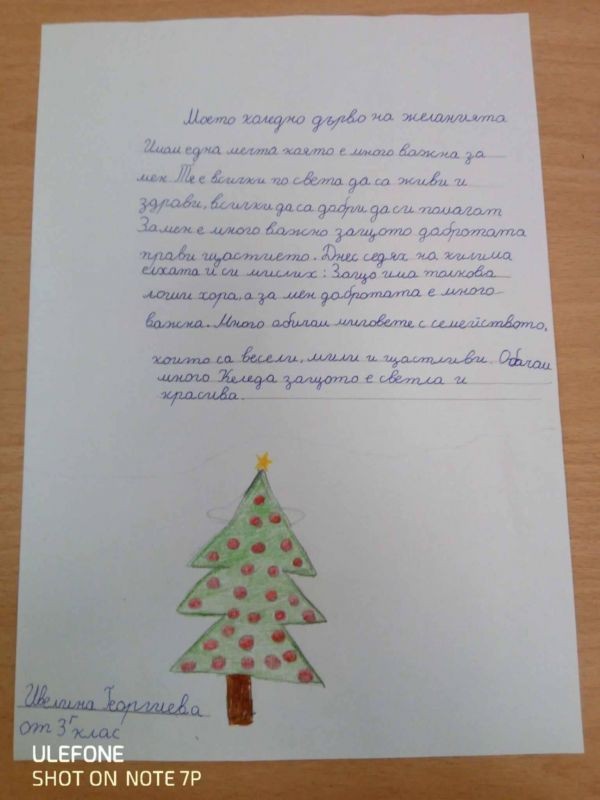 Моето коледно дърво на желанията
Имам една мечта която е много важна за
мен. Те е всички по света да са живи и
здрави, всички да са добри да си помагат
За мен е много важно защото добротата
прави щастието. Днес седях на килима
елхата и си мислих: Защо има толкова
лоши хора, а за мен добротата е много
важна. Много обичам миговете с семейството,
които са весели, мили и щастливи. Обичам
много Келеда защото е светла и
красива.
Ивелина Георгиева
от 3г клас
ULEFONE
SHOT ON NOTE 7P